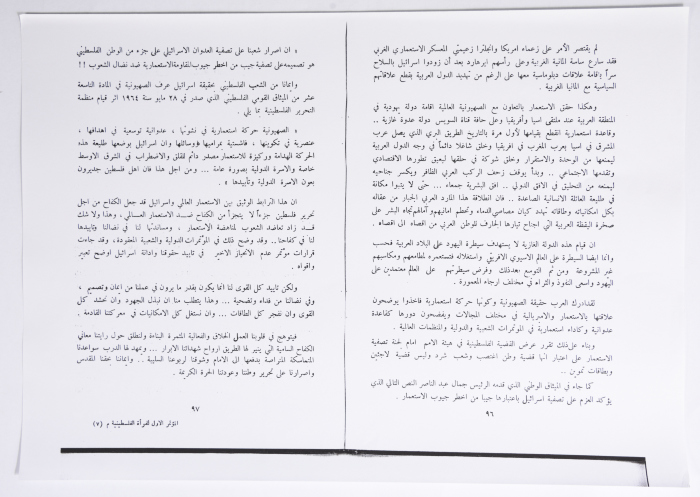 لم يقتصر الأمر على زعماء امريكا وانجلترا زعيمتي المعسكر الاستعماري الغربي
فقد سارع ساسة المانية الغربية وعلى رأسهم ايرهارد بعد أن زودوا اسرائيل بالسلاح
سراً باقامة علاقات دبلوماسية معها على الرغم من تهديد الدول العربية بقطع علاقاتهم
السياسية مع المانيا الغربية .
وهكذا حقق الاستعمار بالتعاون مع الصهيونية العالمية اقامة دولة يهودية في
المنطقة العربية عند ملتقى اسيا وأفريقيا وعلى حافة قناة السويس دولة عدوة غازية ..
وقاعدة استعمارية انقطع بقيامها لأول مرة بالتاريخ الطريق البري الذي يصل عرب
المشرق في اسيا بعرب المغرب في افريقيا وخلق شاغلا دائماً في وجه الدول العربية
ليمنعها من الوحدة والاستقرار وخلق شوكة في حلقها ليعيق تطورها الاقتصادي
وتقدمها الاجتماعي .. وبدأ يوقف زحف الركب العربي الظافر ويكسر جناحيه
ليمنعه من التحليق في الافق الدولي .. افق البشرية جمعاء ... حتى لا يتبوأ مكانة
في طليعة العائلة الانسانية الصاعدة .. فان انطلاقة هذا المارد العربي الجبار من عقاله
بكل امكانياته وطاقاته تهدد كيان مصاصي الدماء وتحطم امانيهم وآمالهم تجاه البشر على
صخرة اليقظة العربية التي اجتاح تيارها الجارف الوطن العربي من اقصاه الى اقصاه .
ان قيام هذه الدولة الغازية لا يستهدف سيطرة اليهود على البلاد العربية فحسب
وانما ايضا السيطرة على العالم الاسيوي الافريقي واستغلاله فتستعمره لمطامعهم ومكاسبهم
غير المشروعة ومن ثم التوسع بعد ذلك وفرض سيطرتهم على العالم معتمدين على
اليهود واسعى النفوذ والثراء في مختلف ارجاء المعمورة .
لقد ادرك العرب حقيقة الصهيونية وكونها حركة استعمارية فاخذوا يوضحون
علاقتها بالاستعمار والامبريالية في مختلف المجالات ويفضحون دورها كقاعدة
عدوانية وكاداه استعمارية في المؤتمرات الشعبية والدولية والمنظمات العالمية .
وبناء على ذلك تقرر عرض القضية الفلسطينية في هيئة الامم امام لجنة تصفية
الاستعمار على اعتبار انها قضية وطن اغتصب وشعب شرد وليس قضية لاجئين
وبطاقات تموين ..
كما جاء في الميثاق الوطني الذي قدمه الرئيس جمال عبد الناصر النص التالي الذي
يؤكد العزم على تصفية اسرائيل باعتبارها جيبا من اخطر جيوب الاستعمار .
٩٦
« ان اصرار شعبنا على تصفية العدوان الاسرائيلي على جزء من الوطن الفلسطيني
هو تصميمه على تصفية جيب من اخطر جيوب المقاومة الاستعمارية ضد نضال الشعوب !!
وايمانا من الشعب الفلسطيني بحقيقة اسرائيل عرف الصهيونية في المادة التاسعة
عشر من الميثاق القومي الفلسطيني الذي صدر في ٢٨ مايو سنة ١٩٦٤ اثر قيام منظمة
التحرير الفلسطينية بما يلي .
« الصهيونية حركة استعمارية في نشوئها ، عدوانية توسعية في اهدافها ،
عنصرية في تكوينها ، فاشستية بمراميها ووسائلها وان اسرائيل بوضعها طليعة هذه
الحركة الهدامة وركيزة للاستعمار مصدر دائم للقلق والاضطراب في الشرق الاوسط
خاصة والاسرة الدولية بصورة عامة ... ومن اجل هذا فان اهل فلسطين جديرون
بعون الاسرة الدولية وتأييدها » .
ان هذا الترابط الوثيق بين الاستعمار العالمي واسرائيل قد جعل الكفاح من اجل
تحرير فلسطين جزءاً لا يتجزأ من الكفاح ضد الاستعمار العالمي ، وهذا ولا شك
قد زاد تعاضد الشعوب المناهضة للاستعمار ، ومساندتها لنا في نضالنا وتأييدها
لنا في كفاحنا .. وقد وضح ذلك في المؤتمرات الدولية والشعبية المعقودة ، وقد جاءت
قرارات مؤتمر عدم الانحياز الاخير في تأييد حقوقنا وادانة اسرائيل اوضح تعبير
واقواه .
ولكن تأييد كل القوى لنا انما يكون بقدر ما يرون في عملنا من ايمان وتصميم ،
وفي نضالنا من فداء وتضحية ... وهذا يتطلب منا ان نبذل الجهود وان نحشد كل
القوى وان نفجر كل الطاقات ... وان نستغل كل الامكانيات في معركتنا القادمة .
فيتوهج في قلوبنا العمل الخلاق والفعالية المثمرة البناءة ولننطلق حول رايتنا معاني
الكفاح السامية التي ينير لها الطريق ارواح شهدائنا الابرار ... ويمهد لها الدرب سواعدنا
المتماسكة المتراصة يدفعها الى الامام وشوقنا لربوعنا السليبة .. وايماننا حقنا المقدس
واصرارنا على تحرير وطننا وعودتنا الحرة الكريمة .
٩٧
المؤتمر الاول للمرأة الفلسطينية م (٧)